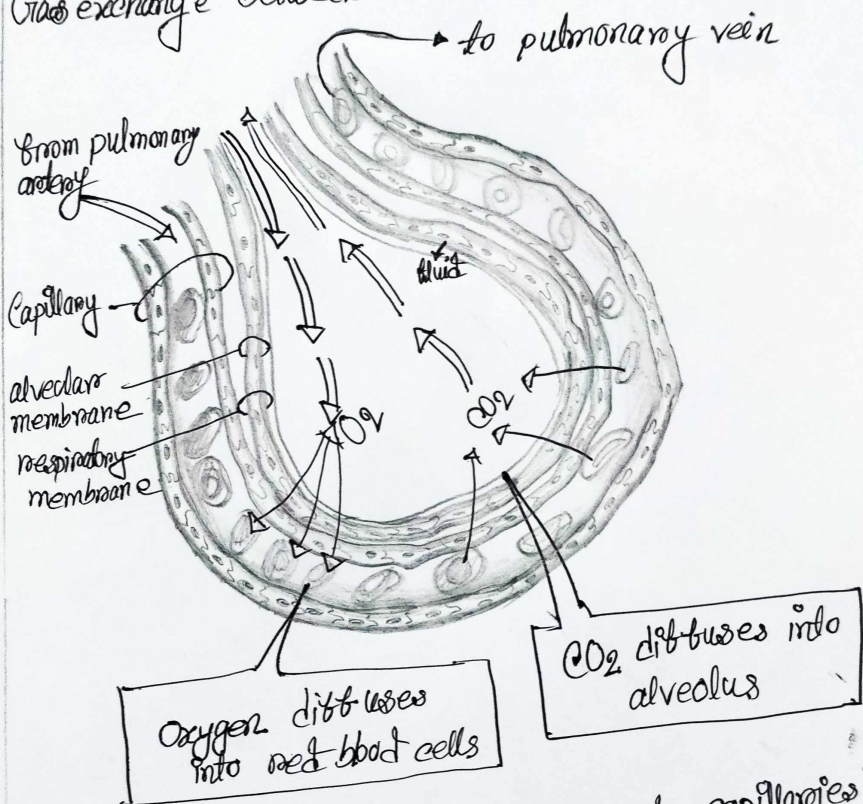 Gas exchange between
to pulmonary vein
from pulmonary
artery
fluid
Capillary
alveolar
membrane
respiratory
membrane
O2
CO2
CO2 diffuses into
alveolus
Oxygen diffuses
into red blood cells
capillaries